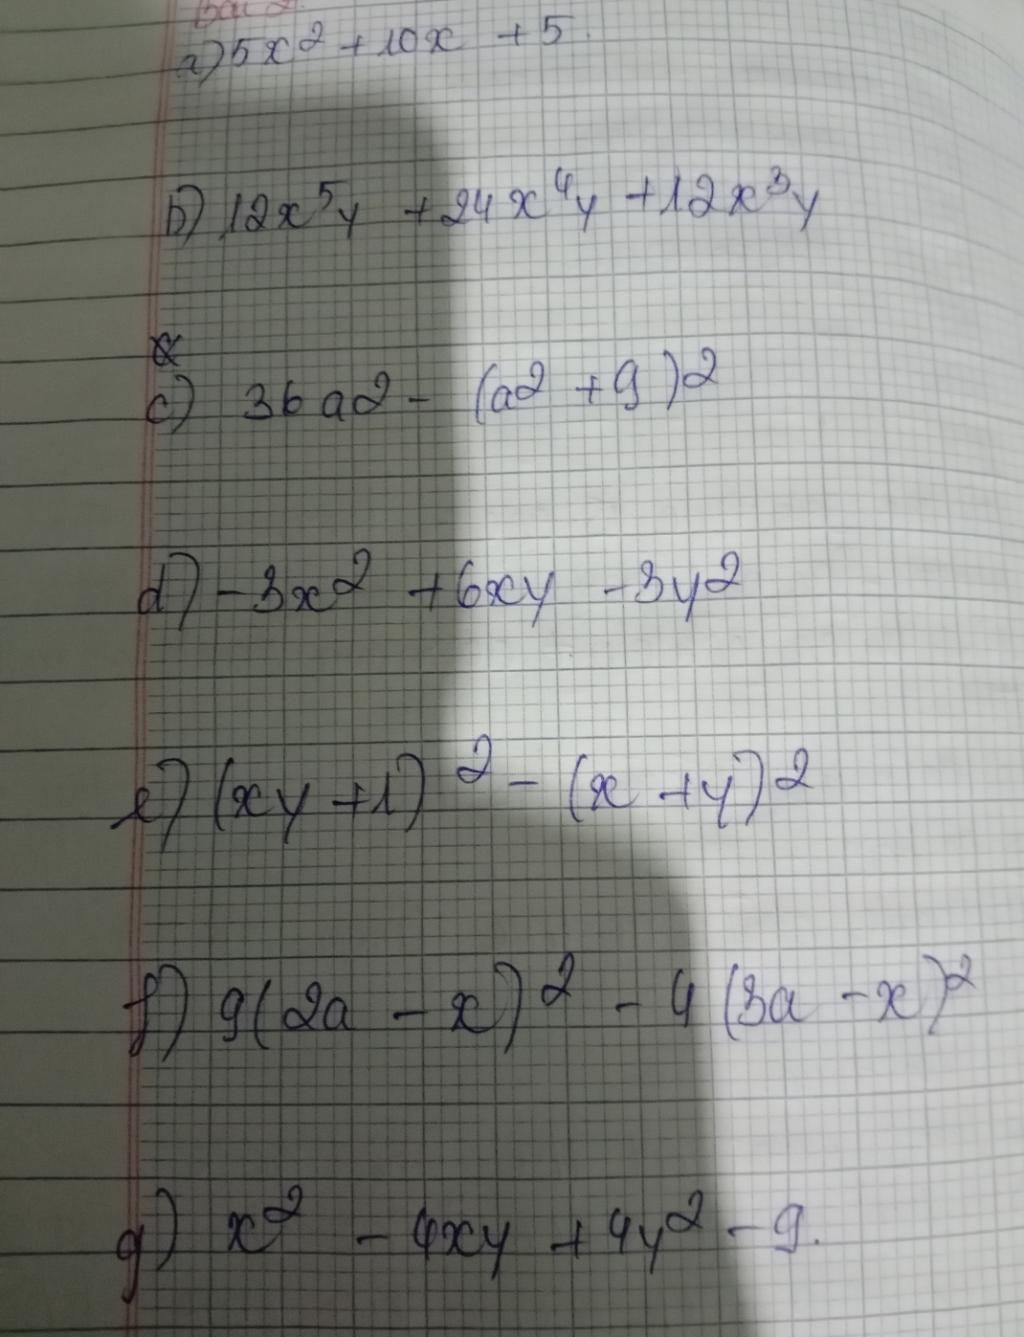 Bài 2
a) 5x² + 10x + 5.
b) 12x⁵y + 24x⁴y + 12x³y
c) 36a2 - (a2 + 9)2
d) -3x² + 6xy - 3y2
e) (xy + 1)² - (x + y)²
f) 9(2a - x)² - 4(3a - x)²
g) x² - 4xy + 4y² - 9.